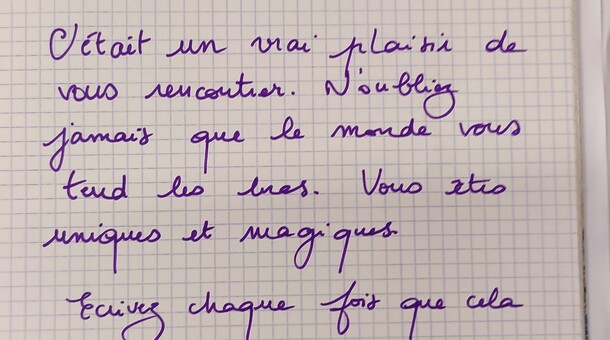 C'était un vrai plaisir de
vous rencontrer. N'oubliez
jamais que le monde vous
tend les bras. Vous êtes
uniques et magiques
Ecrivez chaque fois que cela